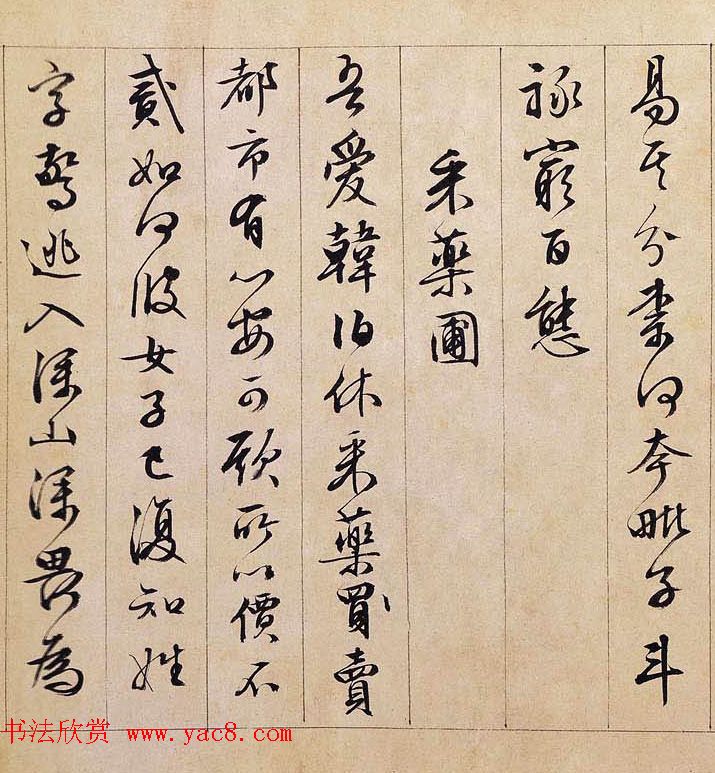 易其介柰何夸毗子斗
祿窮百態
采藥圃
吾愛韓伯休采藥買賣
都市有心安可欺所以價不
貳如何彼女子已復知姓
字驚逃入深山深畏為
书法欣赏 www.yac8.com